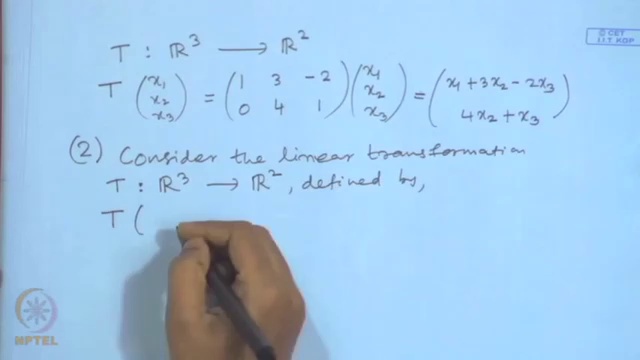 © CET
I.I.T. KGP
T : ℝ³ ⟶ ℝ²
T (x₁ x₂ x₃) = (1 3 -2 0 4 1) (x₁ x₂ x₃) = (x₁ + 3x₂ - 2x₃ 4x₂ + x₃)
(2) Consider the linear transformation
T : ℝ³ ⟶ ℝ², defined by,
T (
NPTEL